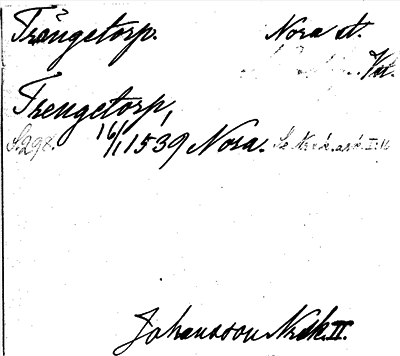 Trängetorp. Nora st.
Vm.
Trengetorp,
S. 298. 16/1 1539 Nora.
Johansson Nrsk. II.